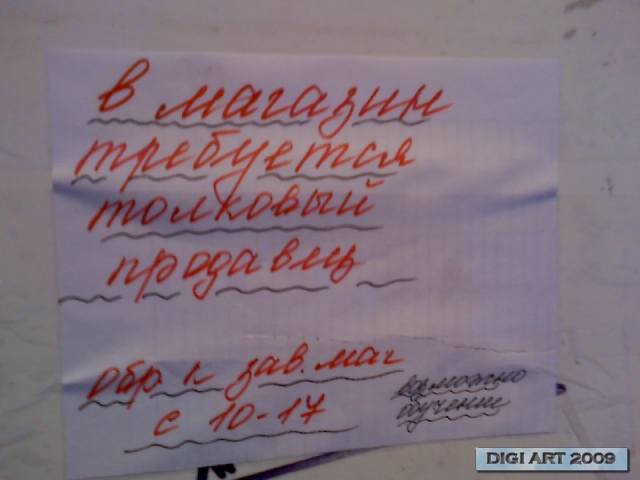 в магазин
требуется
толковый
продавец
обр. к зав. маг
с 10-17
возможно
обучение
DIGI ART 2009